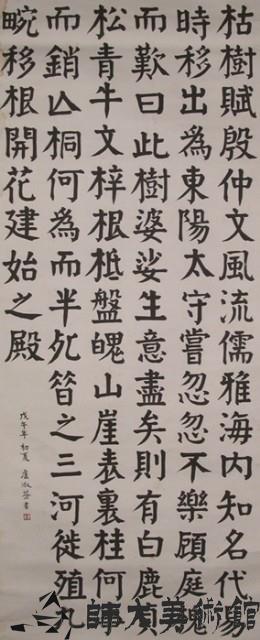 枯樹賦殷仲文風流儒雅海內知名代易
時移出為東陽太守嘗忽忽不樂顧庭槐
而歎曰此樹婆娑生意盡矣則有白鹿貞
松青牛文梓根柢盤魄山崖表裏桂何事
而銷亾桐何為而半死昔之三河徙殖九
畹移根開花建始之殿
戊午年初夏 淑 書
師大美術館